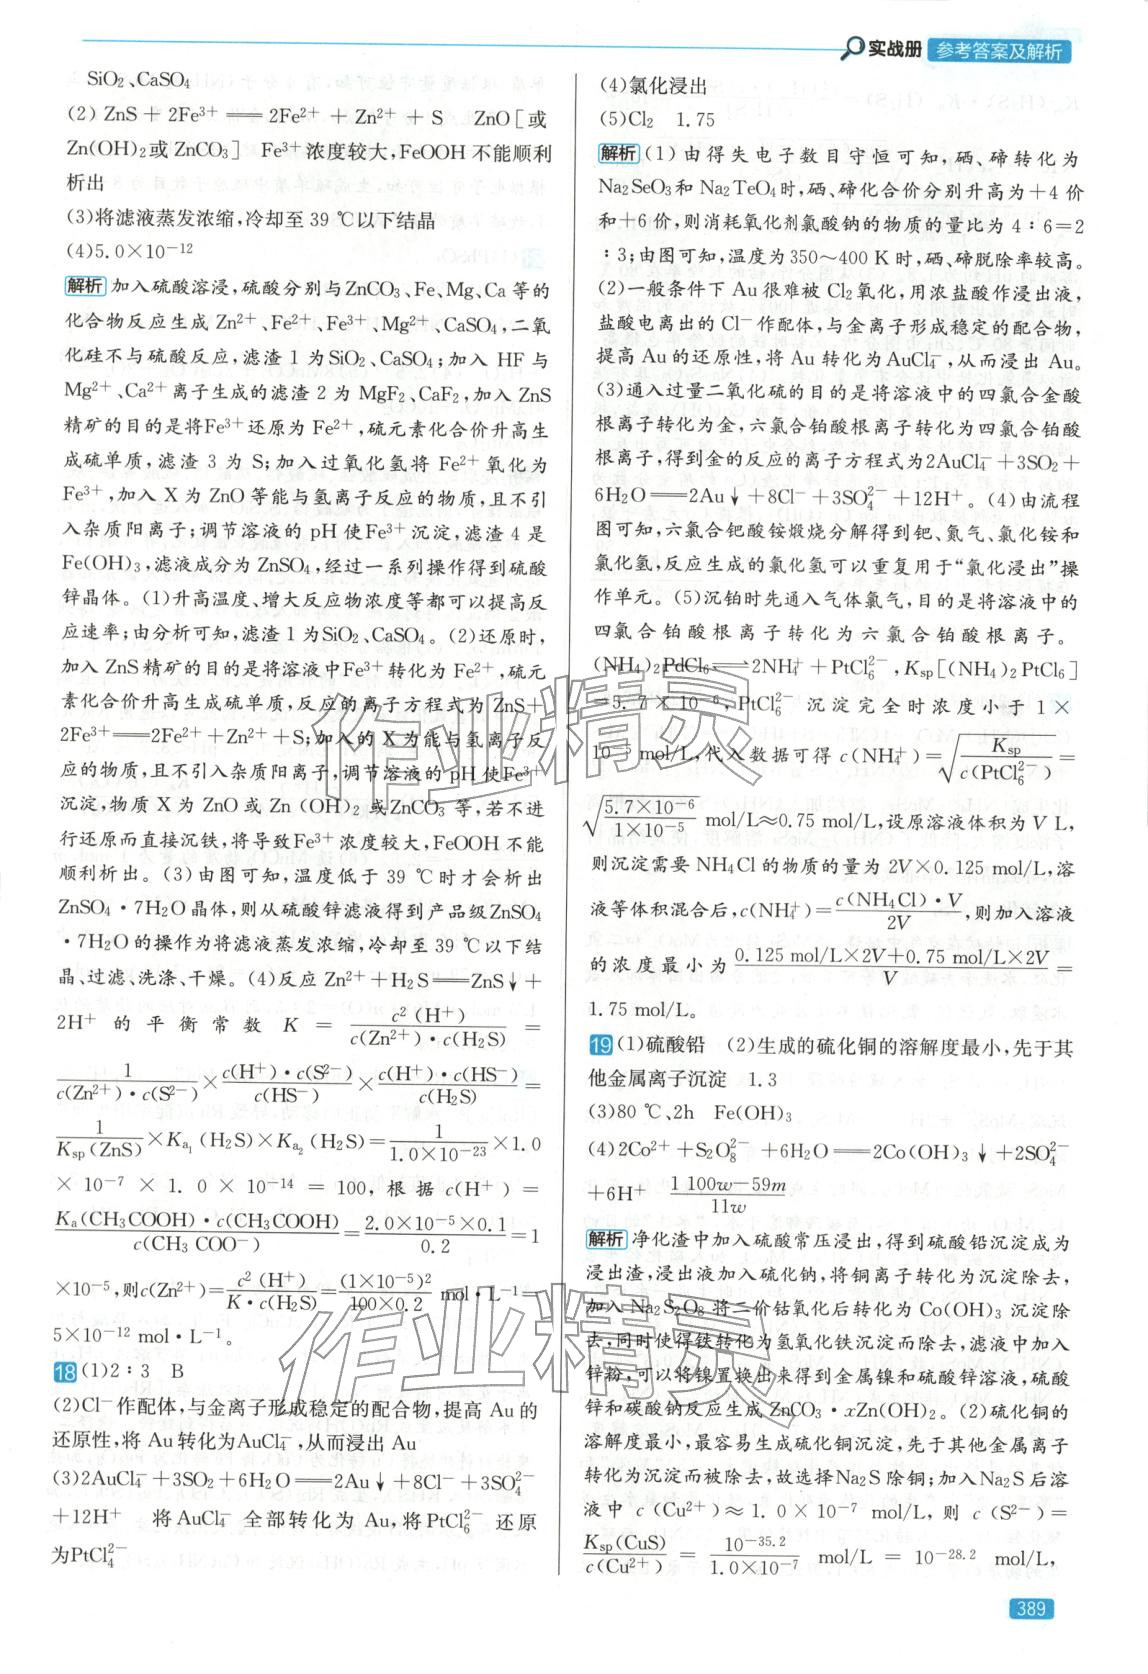 实战册 参考答案及解析
SiO₂、CaSO₄
(2) ZnS + 2Fe³⁺ ══ 2Fe²⁺ + Zn²⁺ + S　ZnO[或
Zn(OH)₂或ZnCO₃]　Fe³⁺浓度较大,FeOOH不能顺利
析出
(3)将滤液蒸发浓缩,冷却至 39 ℃以下结晶
(4)5.0×10⁻¹²
解析 加入硫酸溶浸,硫酸分别与ZnCO₃、Fe、Mg、Ca 等的
化合物反应生成 Zn²⁺、Fe²⁺、Fe³⁺、Mg²⁺、CaSO₄,二氧
化硅不与硫酸反应,滤渣 1 为 SiO₂、CaSO₄;加入 HF 与
Mg²⁺、Ca²⁺ 离子生成的滤渣 2 为 MgF₂、CaF₂,加入 ZnS
精矿的目的是将Fe³⁺还原为 Fe²⁺,硫元素化合价升高生
成硫单质,滤渣 3 为 S;加入过氧化氢将 Fe²⁺ 氧化为
Fe³⁺,加入 X 为 ZnO 等能与氢离子反应的物质,且不引
入杂质阳离子;调节溶液的 pH 使Fe³⁺沉淀,滤渣 4 是
Fe(OH)₃,滤液成分为 ZnSO₄,经过一系列操作得到硫酸
锌晶体。(1)升高温度、增大反应物浓度等都可以提高反
应速率;由分析可知,滤渣 1 为SiO₂、CaSO₄。(2)还原时,
加入 ZnS 精矿的目的是将溶液中Fe³⁺转化为 Fe²⁺,硫元
素化合价升高生成硫单质,反应的离子方程式为 ZnS+
2Fe³⁺══2Fe²⁺+Zn²⁺+S;加入的 X 为能与氢离子反
应的物质,且不引入杂质阳离子,调节溶液的 pH 使Fe³⁺
沉淀,物质 X 为 ZnO 或 Zn (OH)₂ 或ZnCO₃ 等,若不进
行还原而直接沉铁,将导致Fe³⁺ 浓度较大,FeOOH 不能
顺利析出。(3)由图可知,温度低于 39 ℃时才会析出
ZnSO₄·7H₂O 晶体,则从硫酸锌滤液得到产品级ZnSO₄
·7H₂O的操作为将滤液蒸发浓缩,冷却至 39 ℃以下结
晶、过滤、洗涤、干燥。(4)反应 Zn²⁺+H₂S══ZnS↓+
2H⁺ 的平衡常数 K = c²(H⁺)/[c(Zn²⁺)·c(H₂S)] =
1/[c(Zn²⁺)·c(S²⁻)] × c(H⁺)·c(S²⁻)/c(HS⁻) × c(H⁺)·c(HS⁻)/c(H₂S) =
1/Ksp(ZnS) × Ka₁(H₂S)×Ka₂(H₂S) = 1/(1.0×10⁻²³) ×1.0
×10⁻⁷×1.0×10⁻¹⁴=100,根据c(H⁺)=
Ka(CH₃COOH)·c(CH₃COOH)/c(CH₃COO⁻) = (2.0×10⁻⁵×0.1)/0.2 =1
×10⁻⁵,则c(Zn²⁺)= c²(H⁺)/[K·c(H₂S)] = (1×10⁻⁵)²/(100×0.2) mol·L⁻¹=
5×10⁻¹² mol·L⁻¹。
18 (1)2∶3　B
(2)Cl⁻作配体,与金离子形成稳定的配合物,提高 Au的
还原性,将 Au转化为AuCl₄⁻,从而浸出 Au
(3)2AuCl₄⁻+3SO₂+6H₂O══2Au↓+8Cl⁻+3SO₄²⁻
+12H⁺　将 AuCl₄⁻ 全部转化为 Au,将PtCl₆²⁻ 还原
为PtCl₄²⁻
(4)氯化浸出
(5)Cl₂　1.75
解析 (1)由得失电子数目守恒可知,硒、碲转化为
Na₂SeO₃和 Na₂TeO₄时,硒、碲化合价分别升高为+4 价
和+6价,则消耗氧化剂氯酸钠的物质的量比为 4∶6=2
∶3;由图可知,温度为350～400 K时,硒、碲脱除率较高。
(2)一般条件下 Au 很难被 Cl₂氧化,用浓盐酸作浸出液,
盐酸电离出的 Cl⁻作配体,与金离子形成稳定的配合物,
提高 Au 的还原性,将 Au 转化为 AuCl₄⁻,从而浸出 Au。
(3)通入过量二氧化硫的目的是将溶液中的四氯合金酸
根离子转化为金,六氯合铂酸根离子转化为四氯合铂酸
根离子,得到金的反应的离子方程式为2AuCl₄⁻+3SO₂+
6H₂O══2Au↓+8Cl⁻+3SO₄²⁻+12H⁺。(4)由流程
图可知,六氯合钯酸铵煅烧分解得到钯、氮气、氯化铵和
氯化氢,反应生成的氯化氢可以重复用于“氯化浸出”操
作单元。(5)沉铂时先通入气体氯气,目的是将溶液中的
四氯合铂酸根离子转化为六氯合铂酸根离子。
(NH₄)₂PdCl₆⇌2NH₄⁺+PtCl₆²⁻,Ksp[(NH₄)₂PtCl₆]
=5.7×10⁻⁶,PtCl₆²⁻ 沉淀完全时浓度小于 1×
10⁻⁵ mol/L,代入数据可得 c(NH₄⁺)=√(Ksp/c(PtCl₆²⁻)) =
√(5.7×10⁻⁶/1×10⁻⁵) mol/L≈0.75 mol/L,设原溶液体积为 V L,
则沉淀需要 NH₄Cl 的物质的量为 2V×0.125 mol/L,溶
液等体积混合后,c(NH₄⁺)= c(NH₄Cl)·V/2V,则加入溶液
的浓度最小为 (0.125 mol/L×2V+0.75 mol/L×2V)/V =
1.75 mol/L。
19 (1)硫酸铅　(2)生成的硫化铜的溶解度最小,先于其
他金属离子沉淀　1.3
(3)80 ℃、2h　Fe(OH)₃
(4)2Co²⁺+S₂O₈²⁻+6H₂O══2Co(OH)₃↓+2SO₄²⁻
+6H⁺　(1 100w−59m)/11w
解析 净化渣中加入硫酸常压浸出,得到硫酸铅沉淀成为
浸出渣,浸出液加入硫化钠,将铜离子转化为沉淀除去,
加入 Na₂S₂O₈ 将二价钴氧化后转化为 Co(OH)₃ 沉淀除
去,同时使得铁转化为氢氧化铁沉淀而除去,滤液中加入
锌粉,可以将镍置换出来,得到金属镍和硫酸锌溶液,硫酸
锌和碳酸钠反应生成 ZnCO₃·xZn(OH)₂。(2)硫化铜的
溶解度最小,最容易生成硫化铜沉淀,先于其他金属离子
转化为沉淀而被除去,故选择Na₂S 除铜;加入Na₂S 后溶
液中 c(Cu²⁺)≈1.0×10⁻⁷ mol/L,则 c(S²⁻)=
Ksp(CuS)/c(Cu²⁺) = 10⁻³⁵·²/(1.0×10⁻⁷) mol/L=10⁻²⁸·² mol/L,
389
作业精灵
作业精灵